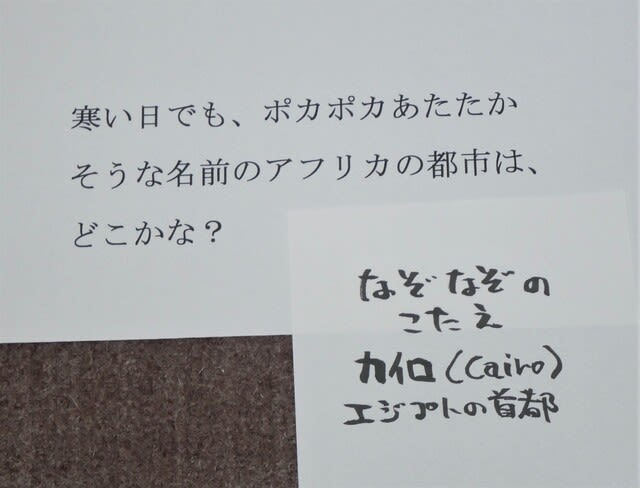 寒い日でも、ポカポカあたたか
そうな名前のアフリカの都市は、
どこかな？
なぞなぞの
こたえ
カイロ(Cairo)
エジプトの首都